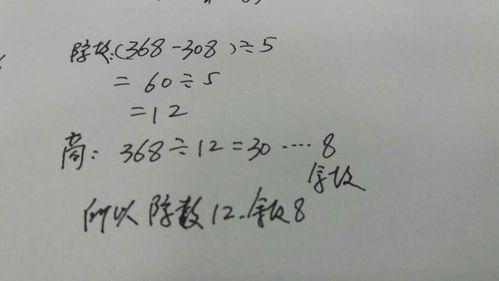 除数:(368-308)÷5
=60÷5
=12
商: 368÷12=30····8
余数
所以除数12.余数8